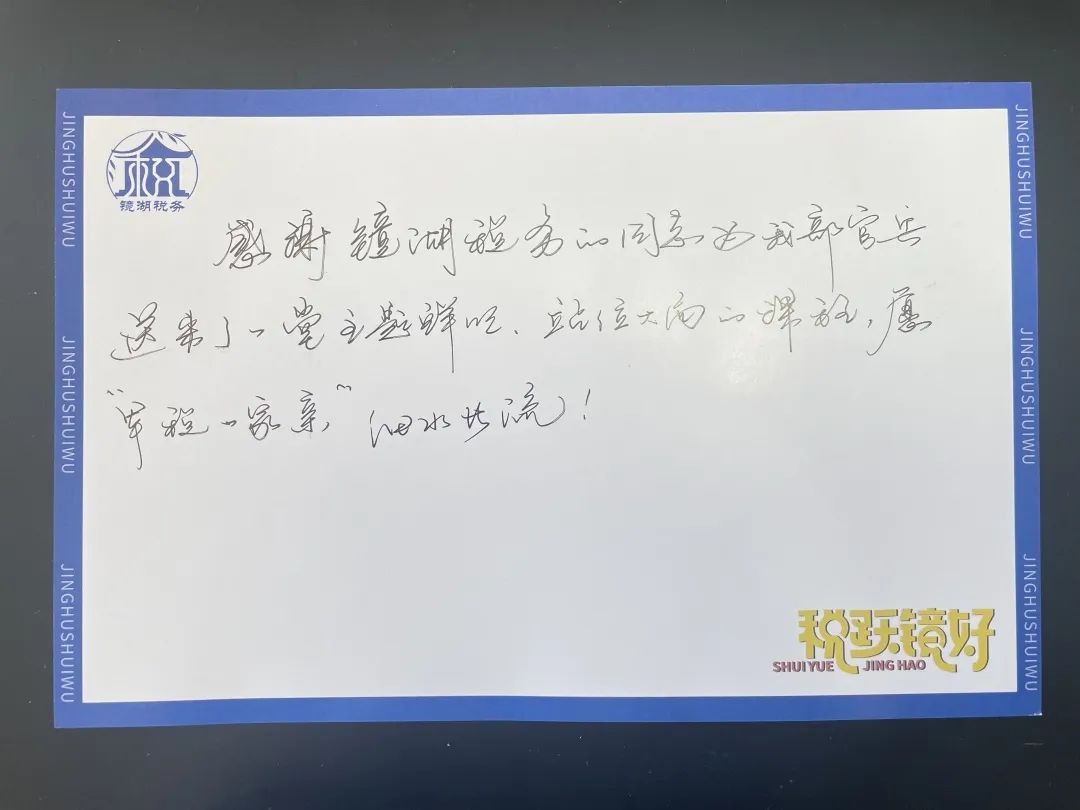 镜湖税务
感谢镜湖税务的同志为我部官兵
送来了一堂主题鲜明、站位的课程,愿
“军税一家亲”细水长流!
税跃镜好
SHUI YUE JING HAO
JINGHUSHUIWU
JINGHUSHUIWU
JINGHUSHUIWU
JINGHUSHUIWU
JINGHUSHUIWU
JINGHUSHUIWU